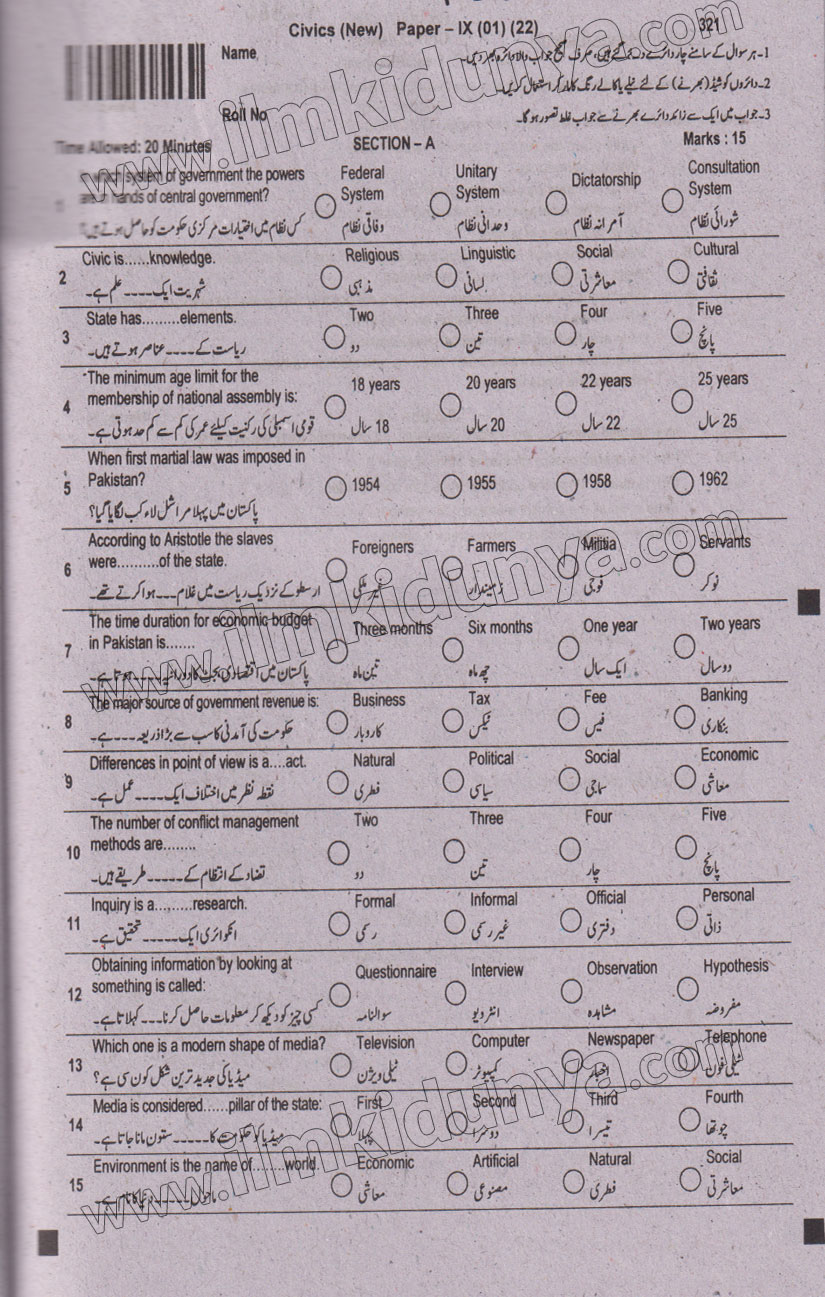 Civics (New) Paper – IX (01) (22)
321
Name
1۔ ہر سوال کے سامنے چار دائرے دیے گئے ہیں، صرف صحیح جواب والا دائرہ بھر دیں۔
2۔ دائروں کو شیڈ (بھرنے) کے لئے نیلے یا کالے رنگ کا مارکر استعمال کریں۔
Roll No
3۔ جواب میں ایک سے زائد دائرے بھرنے سے جواب غلط تصور ہوگا۔
Time Allowed: 20 Minutes
SECTION – A
Marks : 15
which system of government the powers
hands of central government?
کس نظام میں اختیارات مرکزی حکومت کو حاصل ہوتے ہیں؟
Federal System وفاقی نظام
Unitary System وحدانی نظام
Dictatorship آمرانہ نظام
Consultation System شورائی نظام
2 Civic is......knowledge.
شہریت ایک ۔۔۔۔ علم ہے۔
Religious مذہبی
Linguistic لسانی
Social معاشرتی
Cultural ثقافتی
3 State has.........elements.
ریاست کے ۔۔۔۔ عناصر ہوتے ہیں۔
Two دو
Three تین
Four چار
Five پانچ
4 The minimum age limit for the
membership of national assembly is:
قومی اسمبلی کی رکنیت کیلئے عمر کی کم سے کم حد ہوتی ہے۔
18 years 18 سال
20 years 20 سال
22 years 22 سال
25 years 25 سال
5 When first martial law was imposed in
Pakistan?
پاکستان میں پہلا مارشل لاء کب لگایا گیا؟
1954
1955
1958
1962
6 According to Aristotle the slaves
were..........of the state.
ارسطو کے نزدیک ریاست میں غلام ۔۔۔ ہوا کرتے تھے۔
Foreigners غیر ملکی
Farmers زمیندار
Militia فوجی
Servants نوکر
7 The time duration for economic budget
in Pakistan is.......
پاکستان میں اقتصادی بجٹ کا دورانیہ ۔۔۔ ہوتا ہے۔
Three months تین ماہ
Six months چھ ماہ
One year ایک سال
Two years دو سال
8 The major source of government revenue is:
حکومت کی آمدنی کا سب سے بڑا ذریعہ ۔۔۔۔ ہے۔
Business کاروبار
Tax ٹیکس
Fee فیس
Banking بنکاری
9 Differences in point of view is a....act.
نقطہ نظر میں اختلاف ایک ۔۔۔۔ عمل ہے۔
Natural فطری
Political سیاسی
Social سماجی
Economic معاشی
10 The number of conflict management
methods are........
تضاد کے انتظام کے ۔۔۔۔۔ طریقے ہیں۔
Two دو
Three تین
Four چار
Five پانچ
11 Inquiry is a.........research.
انکوائری ایک ۔۔۔۔۔ تحقیق ہے۔
Formal رسمی
Informal غیر رسمی
Official دفتری
Personal ذاتی
12 Obtaining information by looking at
something is called:
کسی چیز کو دیکھ کر معلومات حاصل کرنا ۔۔۔ کہلاتا ہے۔
Questionnaire سوالنامہ
Interview انٹرویو
Observation مشاہدہ
Hypothesis مفروضہ
13 Which one is a modern shape of media?
میڈیا کی جدید ترین شکل کون سی ہے؟
Television ٹیلی ویژن
Computer کمپیوٹر
Newspaper اخبار
Telephone ٹیلی فون
14 Media is considered......pillar of the state:
میڈیا کو حکومت کا ۔۔۔۔۔ ستون مانا جاتا ہے۔
First پہلا
Second دوسرا
Third تیسرا
Fourth چوتھا
15 Environment is the name of........world.
ماحول ۔۔۔۔۔ دنیا کا نام ہے۔
Economic معاشی
Artificial مصنوعی
Natural فطری
Social معاشرتی
www.ilmkidunya.com
www.ilmkidunya.com
www.ilmkidunya.com